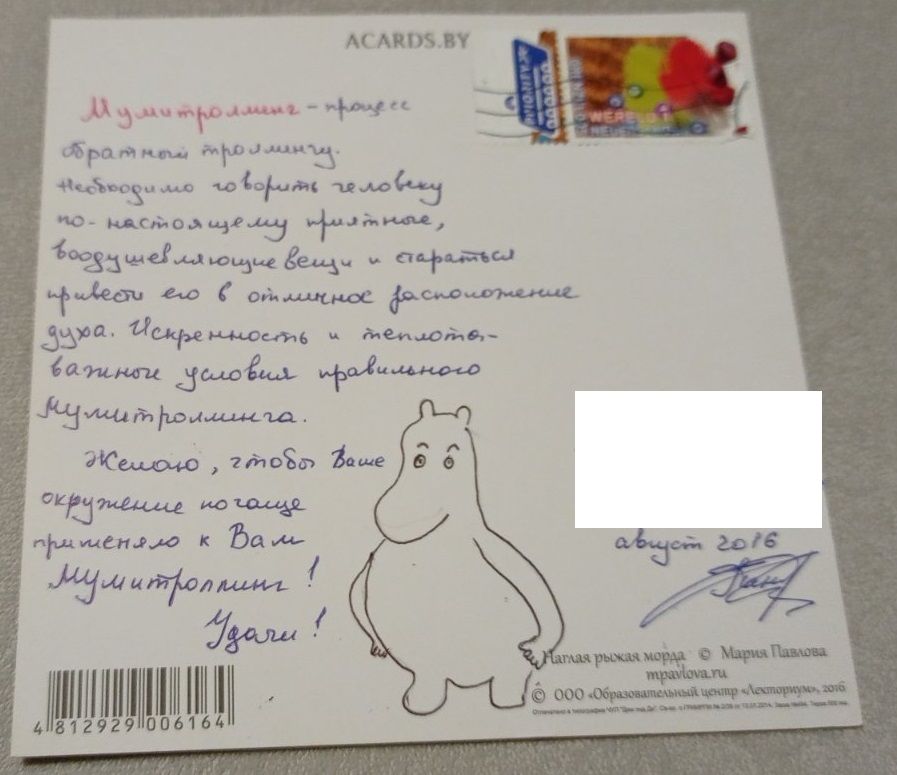 ACARDS.BY
PRIORITY
WERELD
Мумитроллинг - процесс
обратный троллингу.
Необходимо говорить человеку
по-настоящему приятные,
воодушевляющие вещи и стараться
привести его в отличное расположение
духа. Искренность и теплота-
важные условия правильного
Мумитроллинга.
Желаю, чтобы Ваше
окружение почаще
применяло к Вам
Мумитроллинг!
Удачи!
август 2016
Наглая рыжая морда © Мария Павлова
mpavlova.ru
© ООО «Образовательный центр «Лекториум», 2016
4 812929 006164